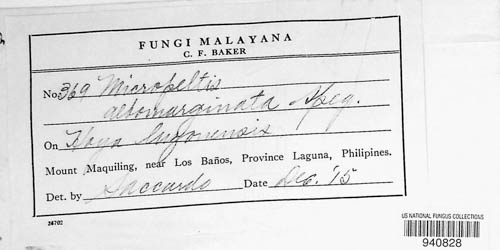 FUNGI MALAYANA
C. F. BAKER
No. 369 Micropeltis
albomarginata Speg.
On Hoya luzonensis
Mount Maquiling, near Los Baños, Province Laguna, Philipines.
Det. by Saccardo Date Dec. '15
24702
US NATIONAL FUNGUS COLLECTIONS
940828